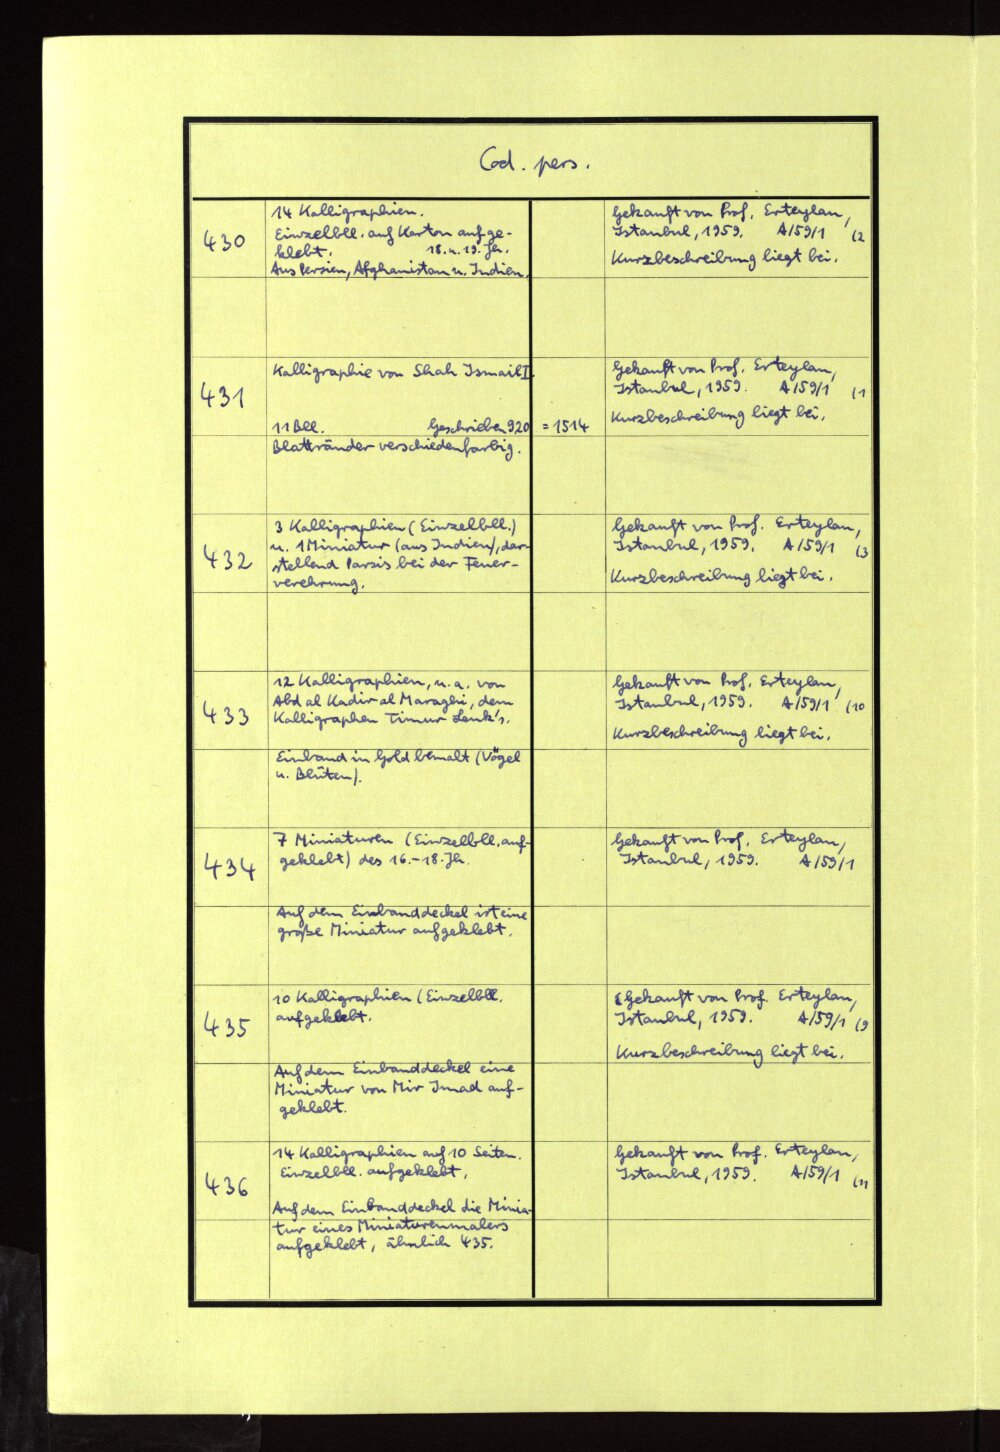 Cod. pers.
430
14 Kalligraphien.
Einzelbll. auf Karton aufge-
klebt. 18. u. 19. Jh.
Aus Persien, Afghanistan u. Indien.
Gekauft von Prof. Erteylan,
Istanbul, 1959. A/59/1 (2
Kurzbeschreibung liegt bei.
431
Kalligraphie von Shah Ismail I.
11 Bll. Geschrieben 920 = 1514
Blattränder verschiedenfarbig.
Gekauft von Prof. Erteylan,
Istanbul, 1959. A/59/1 (1
Kurzbeschreibung liegt bei.
432
3 Kalligraphien (Einzelbll.)
u. 1 Miniatur (aus Indien), dar-
stellend Parsis bei der Feuer-
verehrung.
Gekauft von Prof. Erteylan,
Istanbul, 1959. A/59/1 (3
Kurzbeschreibung liegt bei.
433
12 Kalligraphien, u. a. von
Abd al Kadir al Maraghi, dem
Kalligraphen Timur Lenk's.
Einband in Gold bemalt (Vögel
u. Blüten).
Gekauft von Prof. Erteylan,
Istanbul, 1959. A/59/1 (10
Kurzbeschreibung liegt bei.
434
7 Miniaturen (Einzelbll. auf-
geklebt) des 16.-18. Jh.
Auf dem Einbanddeckel ist eine
große Miniatur aufgeklebt.
Gekauft von Prof. Erteylan,
Istanbul, 1959. A/59/1
435
10 Kalligraphien (Einzelbll.
aufgeklebt.
Auf dem Einbanddeckel eine
Miniatur von Mir Imad auf-
geklebt.
Gekauft von Prof. Erteylan,
Istanbul, 1959. A/59/1 (9
Kurzbeschreibung liegt bei.
436
14 Kalligraphien auf 10 Seiten.
Einzelbll. aufgeklebt,
Auf dem Einbanddeckel die Minia-
tur eines Miniaturenmalers
aufgeklebt, ähnlich 435.
Gekauft von Prof. Erteylan,
Istanbul, 1959. A/59/1 (11